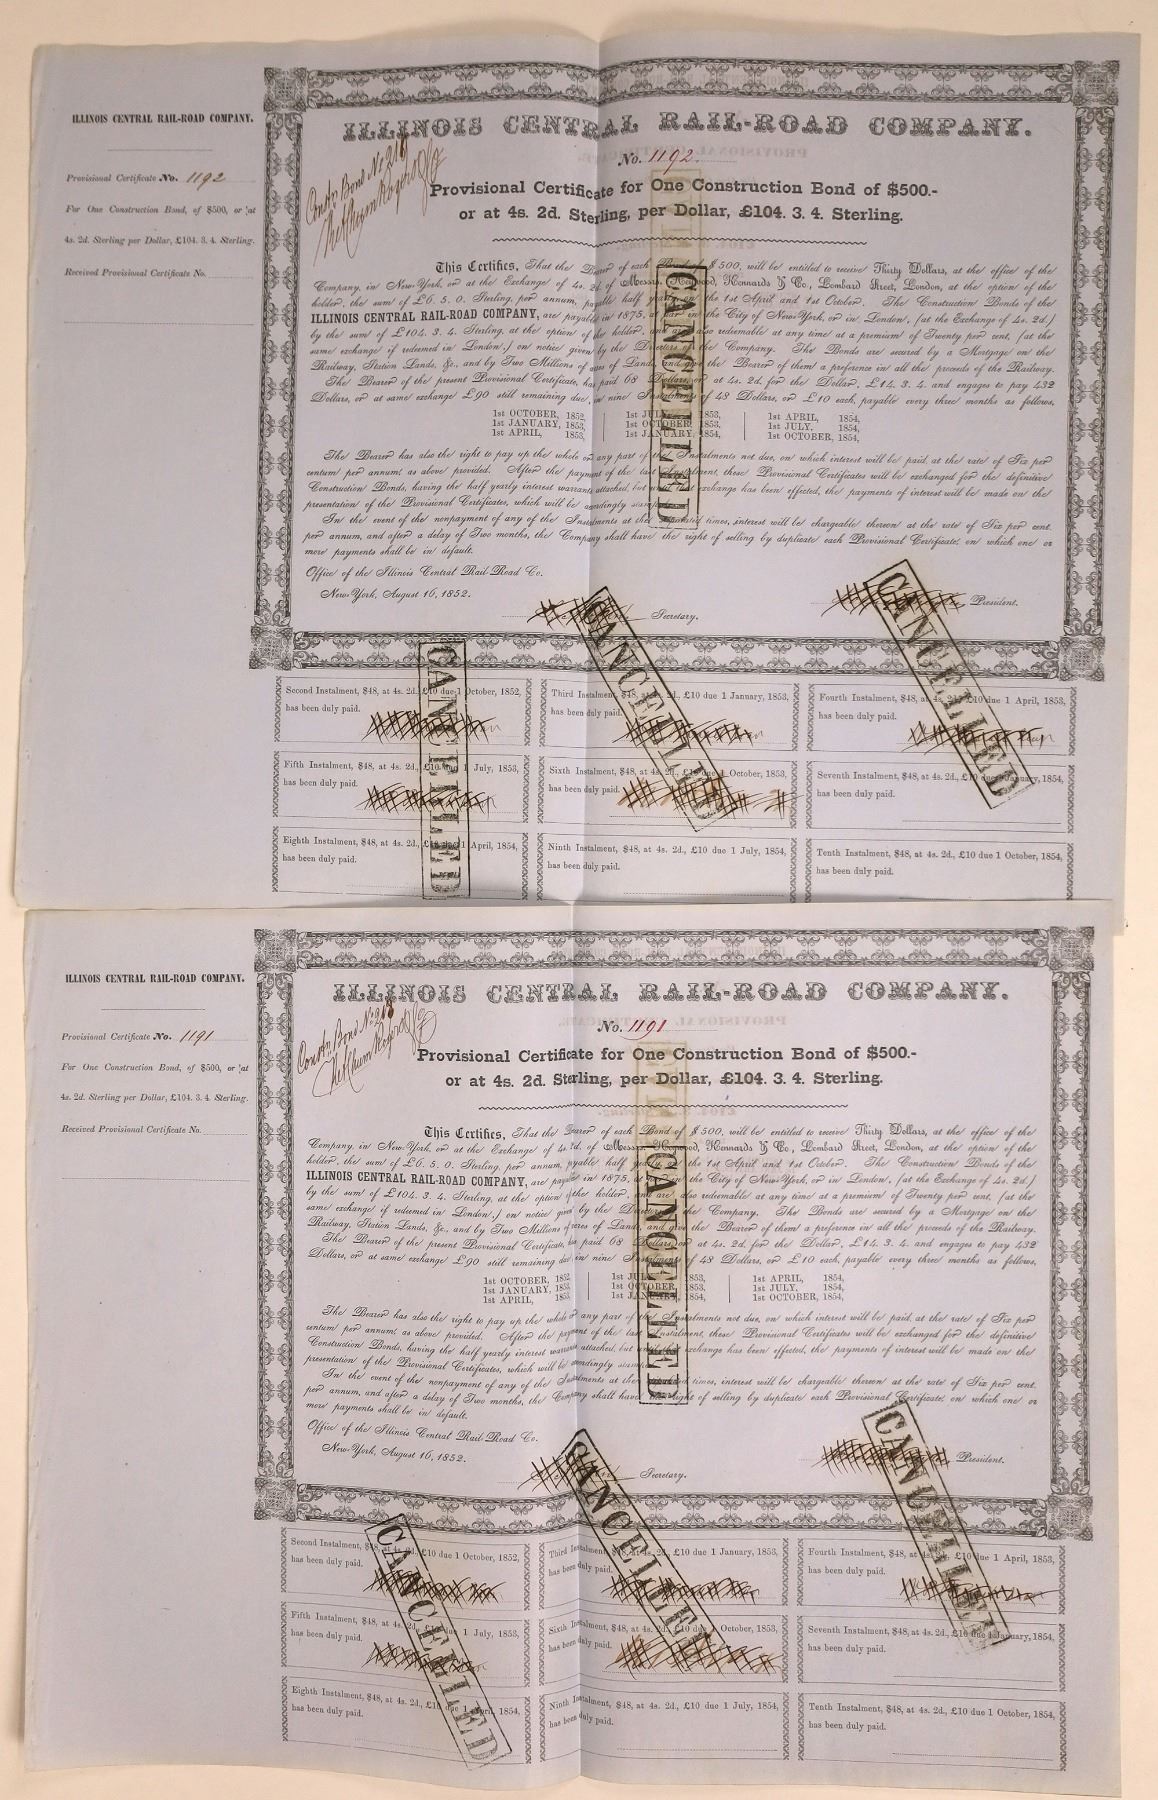 ILLINOIS CENTRAL RAIL-ROAD COMPANY.
Provisional Certificate No. 1192
For One Construction Bond, of $500, or at
4s. 2d. Sterling per Dollar, £104. 3. 4. Sterling.
Received Provisional Certificate No.
ILLINOIS CENTRAL RAIL-ROAD COMPANY.
No. 1192.
Constn Bond No
Provisional Certificate for One Construction Bond of $500.-
or at 4s. 2d. Sterling, per Dollar, £104. 3. 4. Sterling.
This Certifies, That the Bearer of each Bond of $500, will be entitled to receive Thirty Dollars, at the office of the
Company, in New-York, or at the Exchange of 4s. 2d. of Messrs. Heywood, Kennards & Co., Lombard Street, London, at the option of the
holder, the sum of £6. 5. 0. Sterling, per annum, payable half yearly on the 1st April and 1st October. The Construction Bonds of the
ILLINOIS CENTRAL RAIL-ROAD COMPANY, are payable in 1875, at par in the City of New-York, or in London, (at the Exchange of 4s. 2d.)
by the sum of £104. 3. 4. Sterling, at the option of the holder, and are also redeemable at any time at a premium of Twenty per cent, (at the
same exchange if redeemed in London,) on notice given by the Directors of the Company. The Bonds are secured by a Mortgage on the
Railway, Station Lands, &c., and by Two Millions of acres of Land, and give the Bearer of them a preference in all the proceeds of the Railway.
The Bearer of the present Provisional Certificate, has paid 68 Dollars, or at 4s. 2d. for the Dollar, £14. 3. 4. and engages to pay 432
Dollars, or at same exchange £90 still remaining due, in nine Instalments of 48 Dollars, or £10 each, payable every three months as follows,
1st OCTOBER, 1852, 1st JULY, 1853, 1st APRIL, 1854,
1st JANUARY, 1853, 1st OCTOBER, 1853, 1st JULY, 1854,
1st APRIL, 1853, 1st JANUARY, 1854, 1st OCTOBER, 1854,
The Bearer has also the right to pay up the whole or any part of the Instalments not due, on which interest will be paid, at the rate of Six per
centum per annum, as above provided. After the payment of the last Instalment, these Provisional Certificates will be exchanged for the definitive
Construction Bonds, having the half yearly interest warrants attached, but until that exchange has been effected, the payments of interest will be made on the
presentation of the Provisional Certificates, which will be accordingly stamped.
In the event of the nonpayment of any of the Instalments at the appointed times, interest will be chargeable thereon at the rate of Six per cent.
per annum, and after a delay of Two months, the Company shall have the right of selling by duplicate each Provisional Certificate, on which one or
more payments shall be in default.
Office of the Illinois Central Rail Road Co.
New-York, August 16, 1852.
Secretary.
President.
CANCELLED
CANCELLED
CANCELLED
CANCELLED
Second Instalment, $48, at 4s. 2d., £10 due 1 October, 1852,
has been duly paid.
Third Instalment, $48, at 4s. 2d., £10 due 1 January, 1853,
has been duly paid.
Fourth Instalment, $48, at 4s. 2d., £10 due 1 April, 1853,
has been duly paid.
Fifth Instalment, $48, at 4s. 2d., £10 due 1 July, 1853,
has been duly paid.
Sixth Instalment, $48, at 4s. 2d., £10 due 1 October, 1853,
has been duly paid.
Seventh Instalment, $48, at 4s. 2d., £10 due 1 January, 1854,
has been duly paid.
Eighth Instalment, $48, at 4s. 2d., £10 due 1 April, 1854,
has been duly paid.
Ninth Instalment, $48, at 4s. 2d., £10 due 1 July, 1854,
has been duly paid.
Tenth Instalment, $48, at 4s. 2d., £10 due 1 October, 1854,
has been duly paid.
ILLINOIS CENTRAL RAIL-ROAD COMPANY.
Provisional Certificate No. 1191
For One Construction Bond, of $500, or at
4s. 2d. Sterling per Dollar, £104. 3. 4. Sterling.
Received Provisional Certificate No.
ILLINOIS CENTRAL RAIL-ROAD COMPANY.
No. 1191
Constn Bond No
Provisional Certificate for One Construction Bond of $500.-
or at 4s. 2d. Sterling, per Dollar, £104. 3. 4. Sterling.
This Certifies, That the Bearer of each Bond of $500, will be entitled to receive Thirty Dollars, at the office of the
Company, in New-York, or at the Exchange of 4s. 2d. of Messrs. Heywood, Kennards & Co., Lombard Street, London, at the option of the
holder, the sum of £6. 5. 0. Sterling, per annum, payable half yearly on the 1st April and 1st October. The Construction Bonds of the
ILLINOIS CENTRAL RAIL-ROAD COMPANY, are payable in 1875, at par in the City of New-York, or in London, (at the Exchange of 4s. 2d.)
by the sum of £104. 3. 4. Sterling, at the option of the holder, and are also redeemable at any time at a premium of Twenty per cent, (at the
same exchange if redeemed in London,) on notice given by the Directors of the Company. The Bonds are secured by a Mortgage on the
Railway, Station Lands, &c., and by Two Millions of acres of Land, and give the Bearer of them a preference in all the proceeds of the Railway.
The Bearer of the present Provisional Certificate, has paid 68 Dollars, or at 4s. 2d. for the Dollar, £14. 3. 4. and engages to pay 432
Dollars, or at same exchange £90 still remaining due, in nine Instalments of 48 Dollars, or £10 each, payable every three months as follows,
1st OCTOBER, 1852, 1st JULY, 1853, 1st APRIL, 1854,
1st JANUARY, 1853, 1st OCTOBER, 1853, 1st JULY, 1854,
1st APRIL, 1853, 1st JANUARY, 1854, 1st OCTOBER, 1854,
The Bearer has also the right to pay up the whole or any part of the Instalments not due, on which interest will be paid, at the rate of Six per
centum per annum, as above provided. After the payment of the last Instalment, these Provisional Certificates will be exchanged for the definitive
Construction Bonds, having the half yearly interest warrants attached, but until that exchange has been effected, the payments of interest will be made on the
presentation of the Provisional Certificates, which will be accordingly stamped.
In the event of the nonpayment of any of the Instalments at the appointed times, interest will be chargeable thereon at the rate of Six per cent.
per annum, and after a delay of Two months, the Company shall have the right of selling by duplicate each Provisional Certificate, on which one or
more payments shall be in default.
Office of the Illinois Central Rail Road Co.
New-York, August 16, 1852.
Secretary.
President.
CANCELLED
CANCELLED
CANCELLED
CANCELLED
Second Instalment, $48, at 4s. 2d., £10 due 1 October, 1852,
has been duly paid.
Third Instalment, $48, at 4s. 2d., £10 due 1 January, 1853,
has been duly paid.
Fourth Instalment, $48, at 4s. 2d., £10 due 1 April, 1853,
has been duly paid.
Fifth Instalment, $48, at 4s. 2d., £10 due 1 July, 1853,
has been duly paid.
Sixth Instalment, $48, at 4s. 2d., £10 due 1 October, 1853,
has been duly paid.
Seventh Instalment, $48, at 4s. 2d., £10 due 1 January, 1854,
has been duly paid.
Eighth Instalment, $48, at 4s. 2d., £10 due 1 April, 1854,
has been duly paid.
Ninth Instalment, $48, at 4s. 2d., £10 due 1 July, 1854,
has been duly paid.
Tenth Instalment, $48, at 4s. 2d., £10 due 1 October, 1854,
has been duly paid.